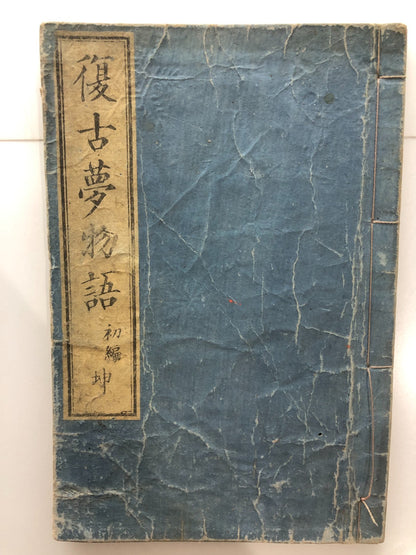 復古夢物語
初編
坤